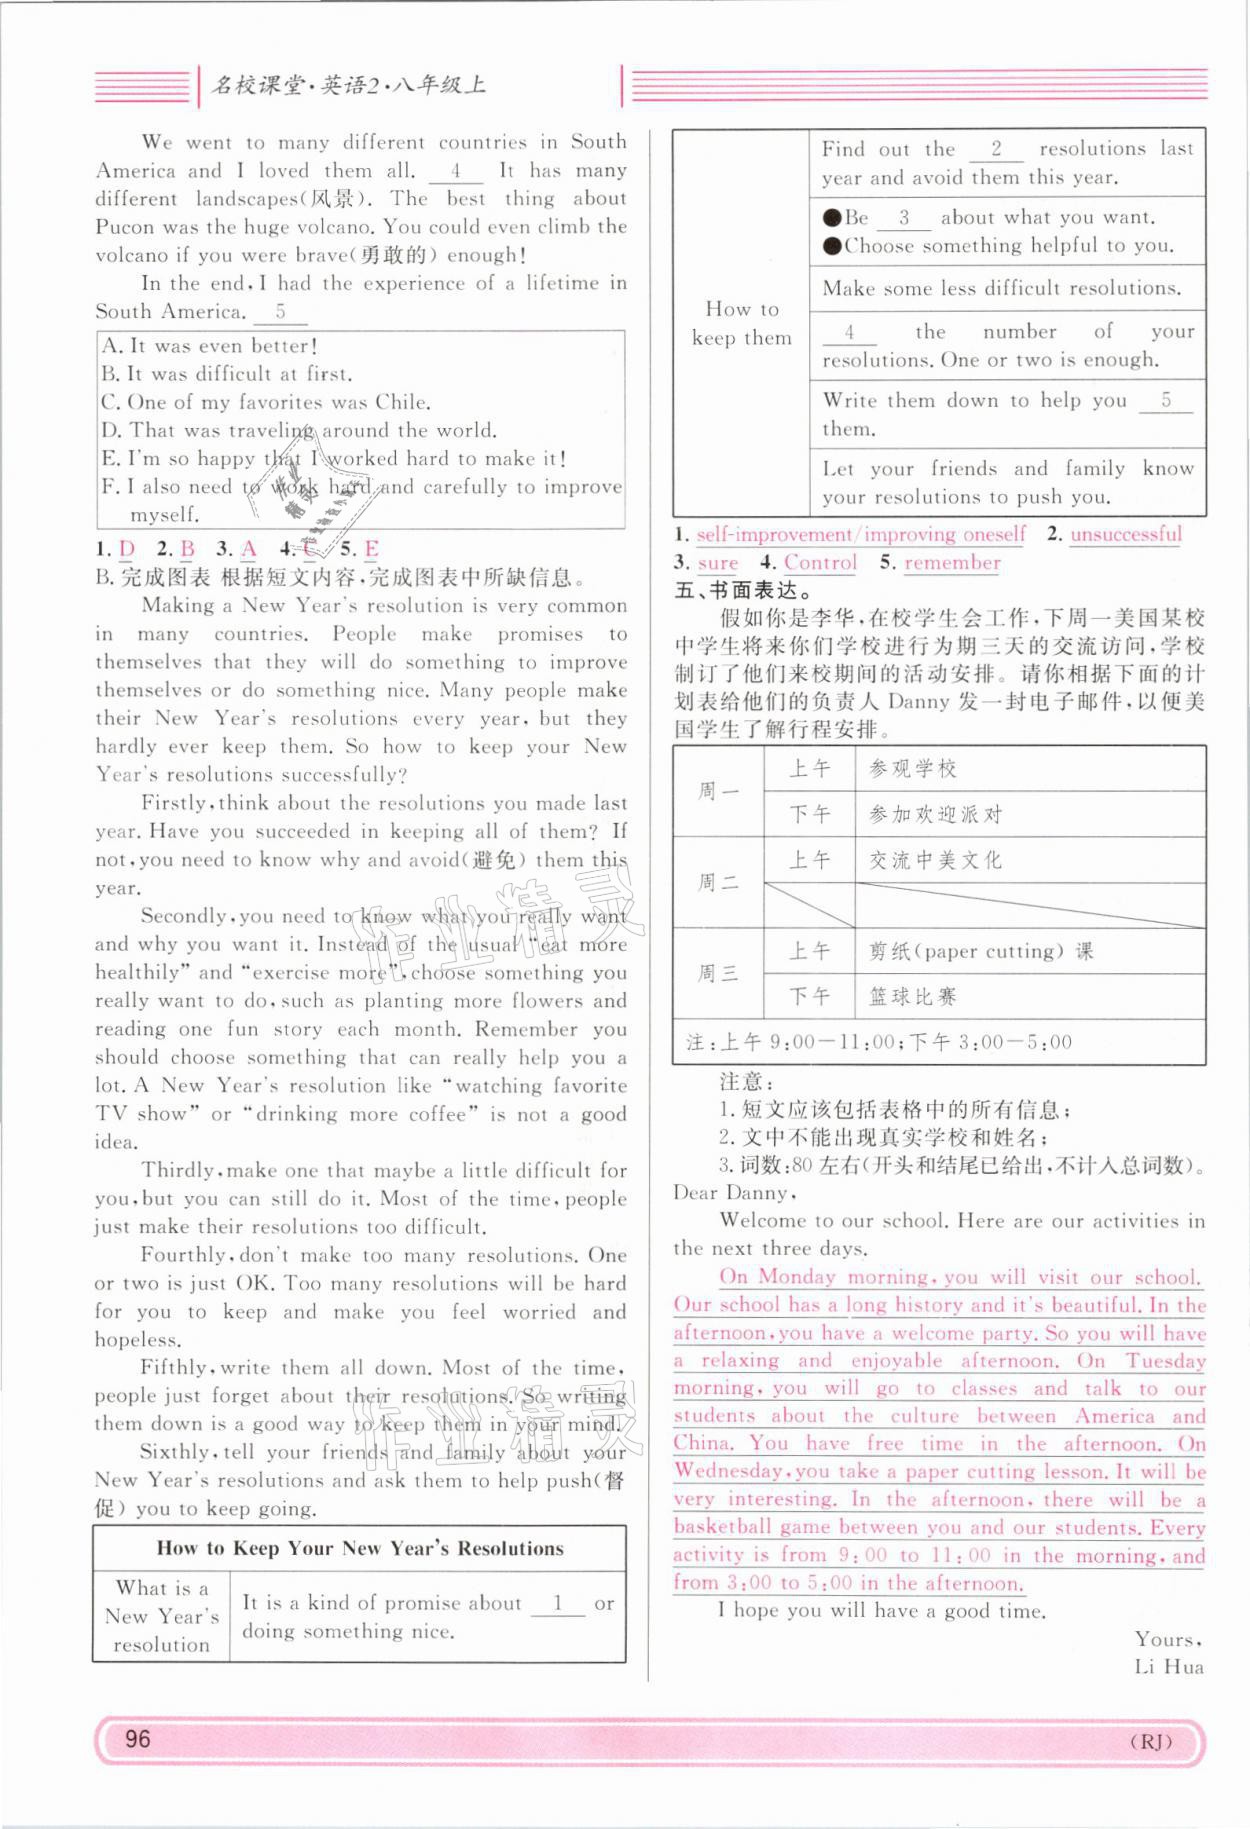 名校课堂·英语2·八年级上
We went to many different countries in South
America and I loved them all. 4 It has many
different landscapes(风景). The best thing about
Pucon was the huge volcano. You could even climb the
volcano if you were brave(勇敢的) enough!
In the end, I had the experience of a lifetime in
South America. 5
A. It was even better!
B. It was difficult at first.
C. One of my favorites was Chile.
D. That was traveling around the world.
E. I'm so happy that I worked hard to make it!
F. I also need to work hard and carefully to improve
myself.
1. D 2. B 3. A 4. C 5. E
B. 完成图表 根据短文内容,完成图表中所缺信息。
Making a New Year's resolution is very common
in many countries. People make promises to
themselves that they will do something to improve
themselves or do something nice. Many people make
their New Year's resolutions every year, but they
hardly ever keep them. So how to keep your New
Year's resolutions successfully?
Firstly, think about the resolutions you made last
year. Have you succeeded in keeping all of them? If
not, you need to know why and avoid(避免) them this
year.
Secondly, you need to know what you really want
and why you want it. Instead of the usual “eat more
healthily” and “exercise more”, choose something you
really want to do, such as planting more flowers and
reading one fun story each month. Remember you
should choose something that can really help you a
lot. A New Year's resolution like “watching favorite
TV show” or “drinking more coffee” is not a good
idea.
Thirdly, make one that maybe a little difficult for
you, but you can still do it. Most of the time, people
just make their resolutions too difficult.
Fourthly, don't make too many resolutions. One
or two is just OK. Too many resolutions will be hard
for you to keep and make you feel worried and
hopeless.
Fifthly, write them all down. Most of the time,
people just forget about their resolutions. So writing
them down is a good way to keep them in your mind.
Sixthly, tell your friends and family about your
New Year's resolutions and ask them to help push(督
促) you to keep going.
How to Keep Your New Year's Resolutions
What is a
New Year's
resolution
It is a kind of promise about 1 or
doing something nice.
How to
keep them
Find out the 2 resolutions last
year and avoid them this year.
●Be 3 about what you want.
●Choose something helpful to you.
Make some less difficult resolutions.
4 the number of your
resolutions. One or two is enough.
Write them down to help you 5
them.
Let your friends and family know
your resolutions to push you.
1. self-improvement/improving oneself 2. unsuccessful
3. sure 4. Control 5. remember
五、书面表达。
假如你是李华,在校学生会工作,下周一美国某校
中学生将来你们学校进行为期三天的交流访问,学校
制订了他们来校期间的活动安排。请你相据下面的计
划表给他们的负责人 Danny 发一封电子邮件,以便美
国学生了解行程安排。
周一 上午 参观学校
下午 参加欢迎派对
周二 上午 交流中美文化
周三 上午 剪纸(paper cutting) 课
下午 篮球比赛
注:上午 9:00—11:00;下午 3:00—5:00
注意:
1. 短文应该包括表格中的所有信息;
2. 文中不能出现真实学校和姓名;
3. 词数:80 左右(开头和结尾已给出,不计入总词数)。
Dear Danny,
Welcome to our school. Here are our activities in
the next three days.
On Monday morning, you will visit our school.
Our school has a long history and it's beautiful. In the
afternoon, you have a welcome party. So you will have
a relaxing and enjoyable afternoon. On Tuesday
morning, you will go to classes and talk to our
students about the culture between America and
China. You have free time in the afternoon. On
Wednesday, you take a paper cutting lesson. It will be
very interesting. In the afternoon, there will be a
basketball game between you and our students. Every
activity is from 9:00 to 11:00 in the morning, and
from 3:00 to 5:00 in the afternoon.
I hope you will have a good time.
Yours,
Li Hua
作业精灵
作业精灵
96
(RJ)